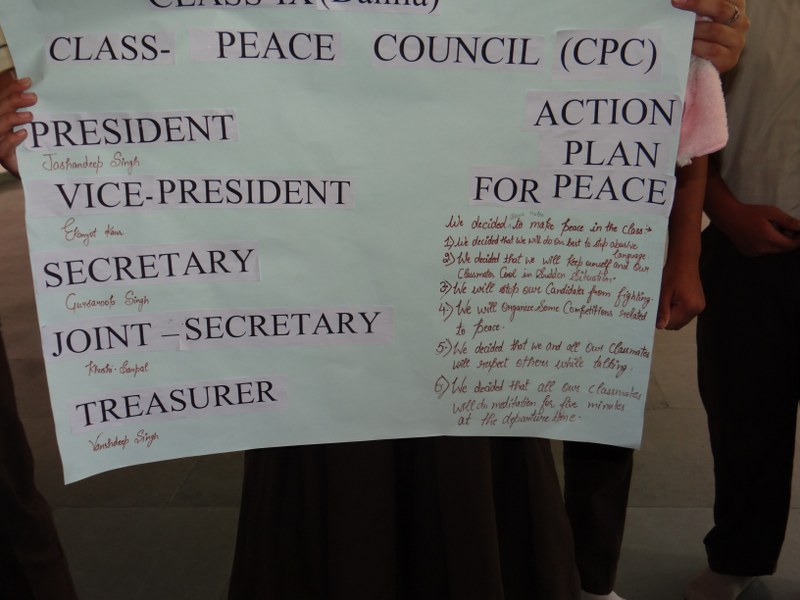 CLASS-IX (Dahlia)
CLASS- PEACE COUNCIL (CPC)
PRESIDENT
Jashandeep Singh
VICE-PRESIDENT
SECRETARY
Gursaroop Singh
JOINT –SECRETARY
TREASURER
Vanshdeep Singh
ACTION
PLAN
FOR PEACE
We decided to make peace in the class:-
1) We decided that we will do our best to stop abusive
language
2) We decided that we will keep ourself and our
Classmates Cool in Sudden Situation.
3) We will stop our Candidates from fighting.
4) We will Organize Some Competitions related
to peace.
5) We decided that we and all Our Classmates
will respect others while talking.
6) We decided that all our classmates
will do meditation for five minutes
at the departure time.